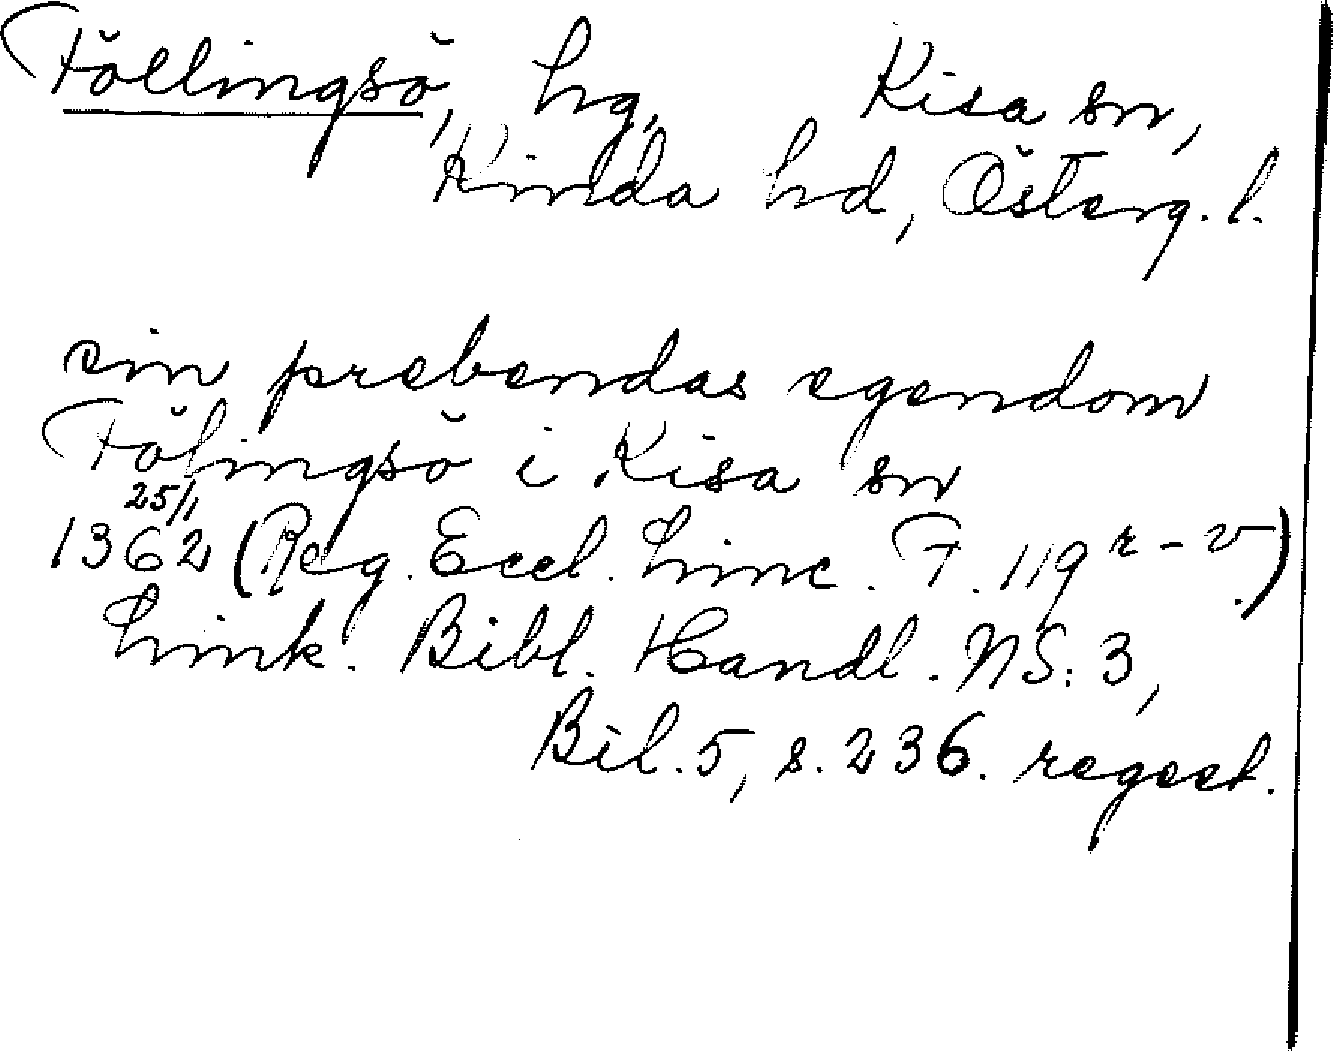 Föllingsö, hg, Kisa sn,
Kinda hd, Österg. l.
sin prebendas egendom
Fölingsö i Kisa sn
25/1
1362 (Reg. Eccl. Linc. F. 119 r-v.)
Link. Bibl. Handl. NS: 3,
Bil. 5, s. 236. regest.